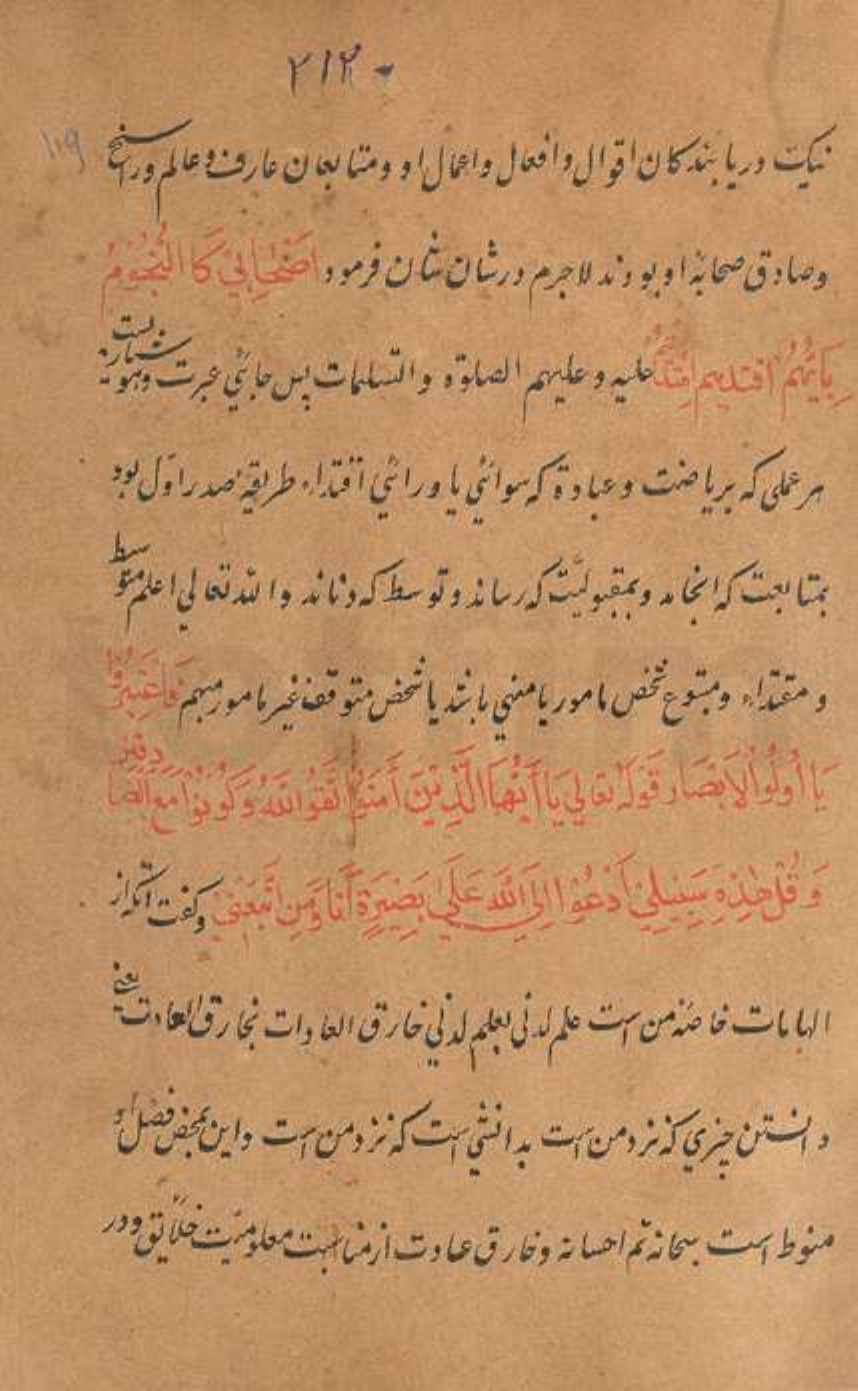 ۲۱۲
۱۱۹
نیک دریابندکان اقوال و افعال و اعمال او و متابعان عارف و عالم و راسخ
و صادق صحابهٔ او بودند لاجرم درشان شان فرمود اَصْحَابِیْ کَا النُّجُوْمُ
بِاَیِّهُمْ اقتدیهم اهتدا علیه و علیهم الصلوة والتسلیمات پس جائی عبرت و هوشیاریست
هر عملی که بریاضت و عبادة که سوائی یا ورائی اقتداء طریقهٔ صدر اوّل بود
بمتابعت که انجامد و بمقبولیّت که رساند و توسط که داناند والله تعالی اعلم متوسط
و مقتداء و متبوع شخص مامور یا منهی باشد یا شخص متوقف غیر مامور مبهم فَاعْتَبِرُوْا
یَا أُولُوا الْاَبْصَار قَوْلُهُ تعالی یَا أَیُّهَا الَّذِیْنَ آمَنُوا اتَّقُوا اللهَ وَکُوْنُوْا مَعَ الصَّادِقِیْنَ
وَ قُلْ هٰذِهِ سَبِیْلِیْ اَدْعُوْا اِلَی اللهِ عَلٰی بَصِیْرَةٍ أَنَا وَمَنِ اتَّبَعَنِیْ و کفت آنکه از
الهامات خاصهٔ من است علم لدنی بعلم لدنی خارق العادات بخارق العادت یعنی
دانستن چیزی که نزد من است بدانشی است که نزد من است و این بمحض فضل او
منوط است سبحانه ثم احسانه و خارق عادت از مناسبت معلومیّت خلایق و در